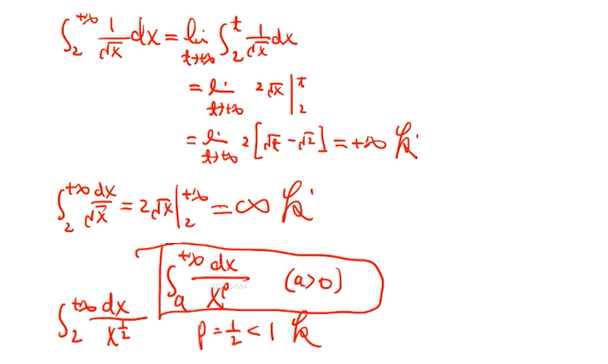 ∫₂^{+∞} 1/√x dx = lim_{t→+∞} ∫₂^t 1/√x dx
= lim_{t→+∞} 2√x |₂^t
= lim_{t→+∞} 2[√t - √2] = +∞
∫₂^{+∞} dx/√x = 2√x |₂^{+∞} = ∞
∫ₐ^{+∞} dx/x^p (a>0)
∫₂^{+∞} dx/x^{1/2} p = 1/2 < 1